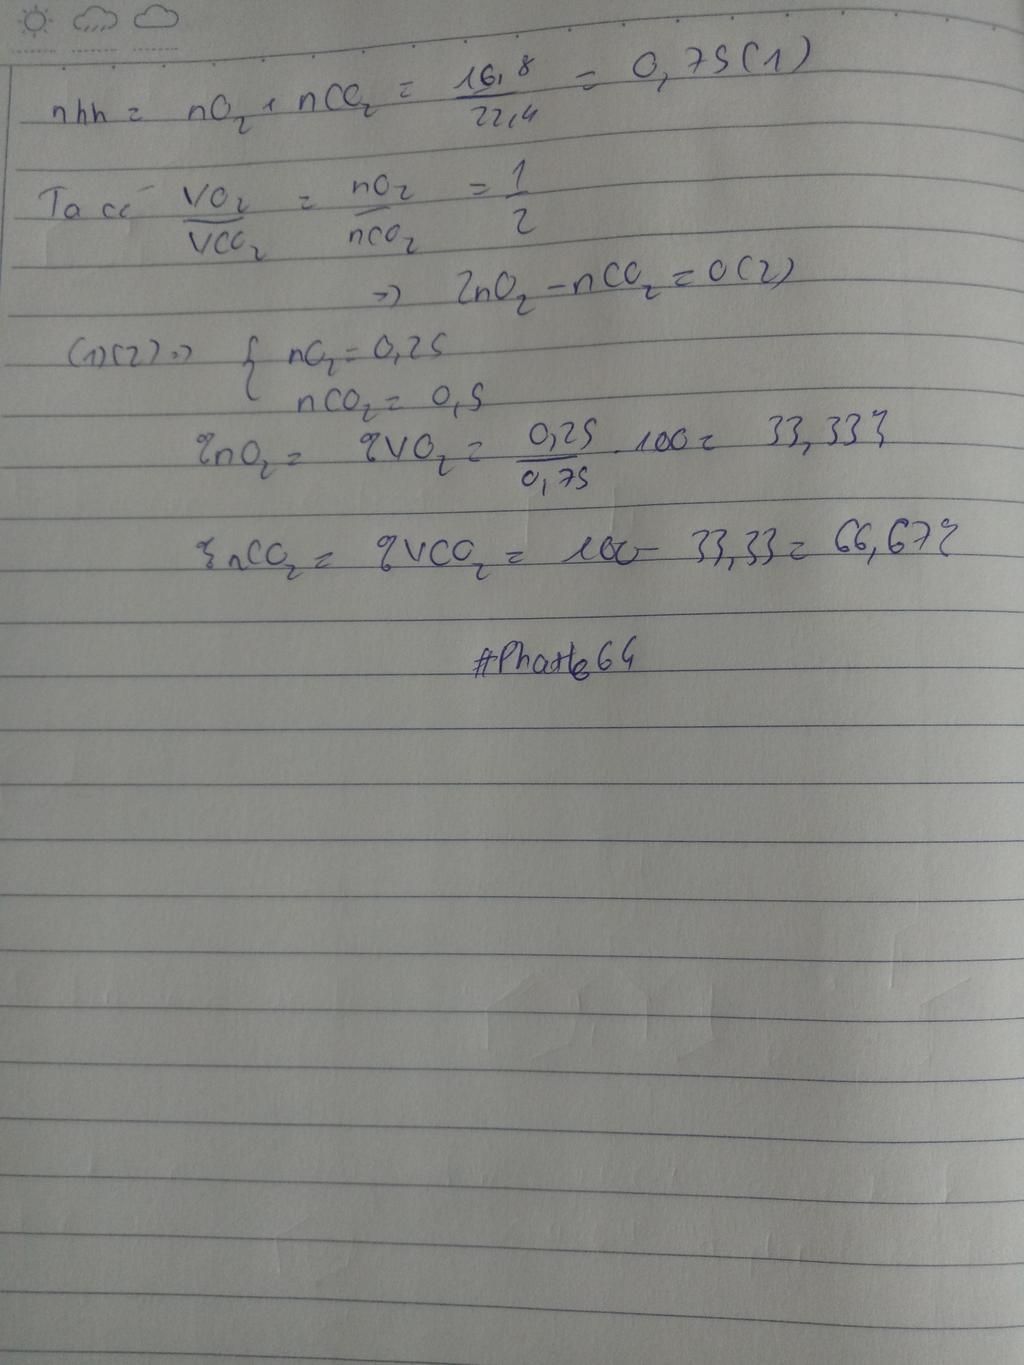 nhh = nO₂ + nCO₂ = 16,8/22,4 = 0,75(1)
Ta có VO₂/VCO₂ = nO₂/nCO₂ = 1/2
=> 2nO₂ - nCO₂ = 0(2)
(1)(2) => { nO₂ = 0,25
nCO₂ = 0,5
%nO₂ = %VO₂ = 0,25/0,75 . 100 = 33,33%
%nCO₂ = %VCO₂ = 100 - 33,33 = 66,67%